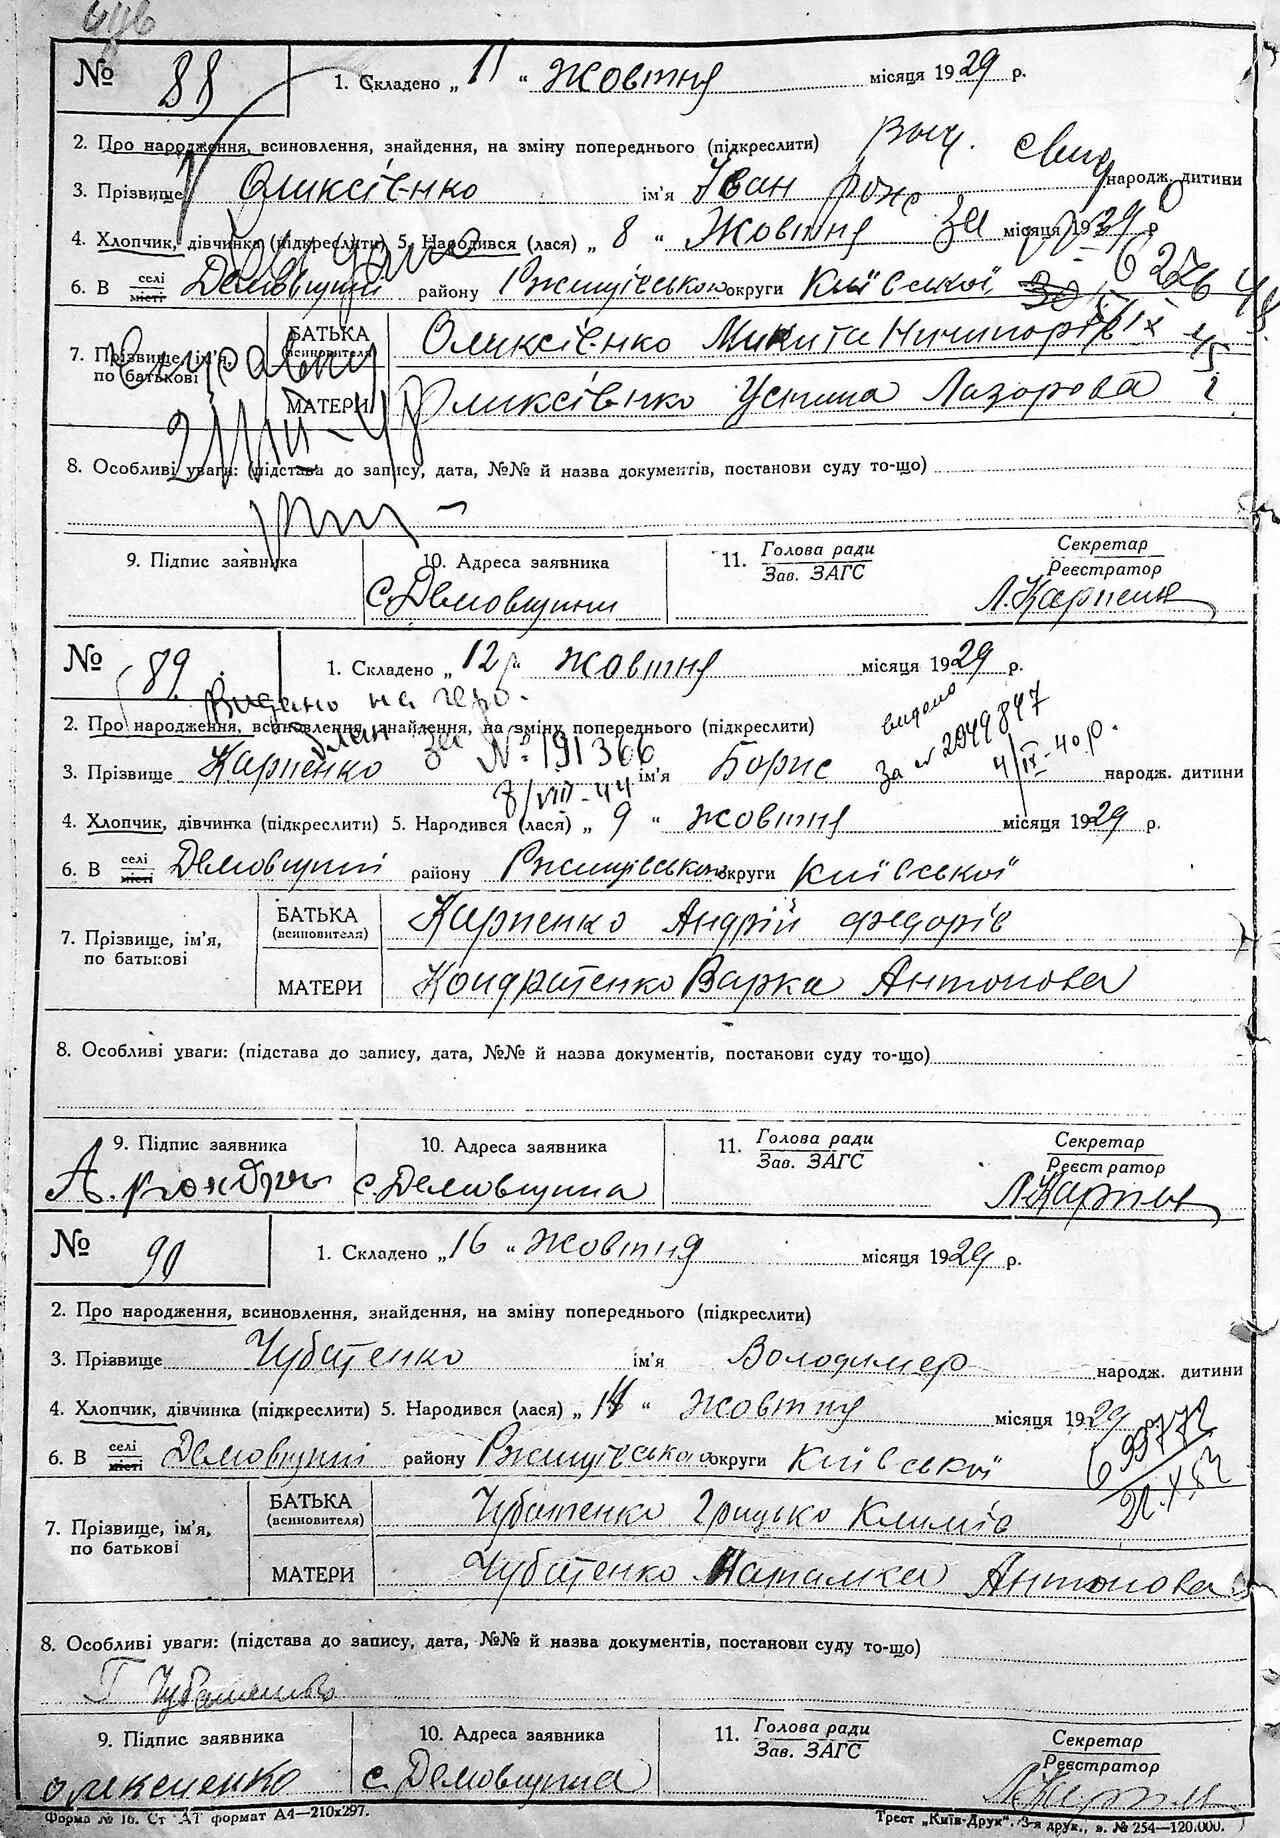 № 88 1. Складено „ 11 “ Жовтня місяця 1929 р.
2. Про народження, всиновлення, знайдення, на зміну попереднього (підкреслити)
3. Прізвище Оликсієнко ім'я Іван народж. дитини
4. Хлопчик, дівчинка (підкреслити) 5. Народився (лася) „ 8 “ Жовтня місяця 1929 р
6. В селі місті Демовщині району Ржищівського округи Київської
7. Прізвище, ім'я, по батькові БАТЬКА (всиновителя) Оликсієнко Микита Ничипорів
МАТЕРИ Оликсієнко Устина Лазорова
Справку
21/III-48
8. Особливі уваги: (підстава до запису, дата, №№ й назва документів, постанови суду то-що)
9. Підпис заявника 10. Адреса заявника 11. Голова ради Зав. ЗАГС Секретар Реєстратор
с. Демовщини Л. Карпенк
№ 89 1. Складено „ 12 “ жовтня місяця 1929 р.
Видано на
2. Про народження, всиновлення, знайдення, на зміну попереднього (підкреслити)
видано
за № 2949847
4/IX-40р.
за № 191366
8/VIII-44
3. Прізвище Карпенко ім'я Борис народж. дитини
4. Хлопчик, дівчинка (підкреслити) 5. Народився (лася) „ 9 “ жовтня місяця 1929 р.
6. В селі місті Демовщині району Ржищівського округи Київської
7. Прізвище, ім'я, по батькові БАТЬКА (всиновителя) Карпенко Андрій Федорів
МАТЕРИ Кондратенко Варка Антонова
8. Особливі уваги: (підстава до запису, дата, №№ й назва документів, постанови суду то-що)
9. Підпис заявника 10. Адреса заявника 11. Голова ради Зав. ЗАГС Секретар Реєстратор
с. Демовщина Л. Карпен
№ 90 1. Складено „ 16 “ жовтня місяця 1929 р.
2. Про народження, всиновлення, знайдення, на зміну попереднього (підкреслити)
3. Прізвище Чубатенко ім'я Володимер народж. дитини
4. Хлопчик, дівчинка (підкреслити) 5. Народився (лася) „ 14 “ жовтня місяця 1929
6. В селі місті Демовщині району Ржищівського округи Київської
7. Прізвище, ім'я, по батькові БАТЬКА (всиновителя) Чубатенко Грицько Климів
МАТЕРИ Чубатенко Наталка Антонова
8. Особливі уваги: (підстава до запису, дата, №№ й назва документів, постанови суду то-що)
Г Чубатенко
9. Підпис заявника 10. Адреса заявника 11. Голова ради Зав. ЗАГС Секретар Реєстратор
Олексиенко с. Демовщина
Форма № 16. Ст А7 формат А4—210х297. Трест „Київ-Друк“. 3-я друк., в. № 254—120.000.